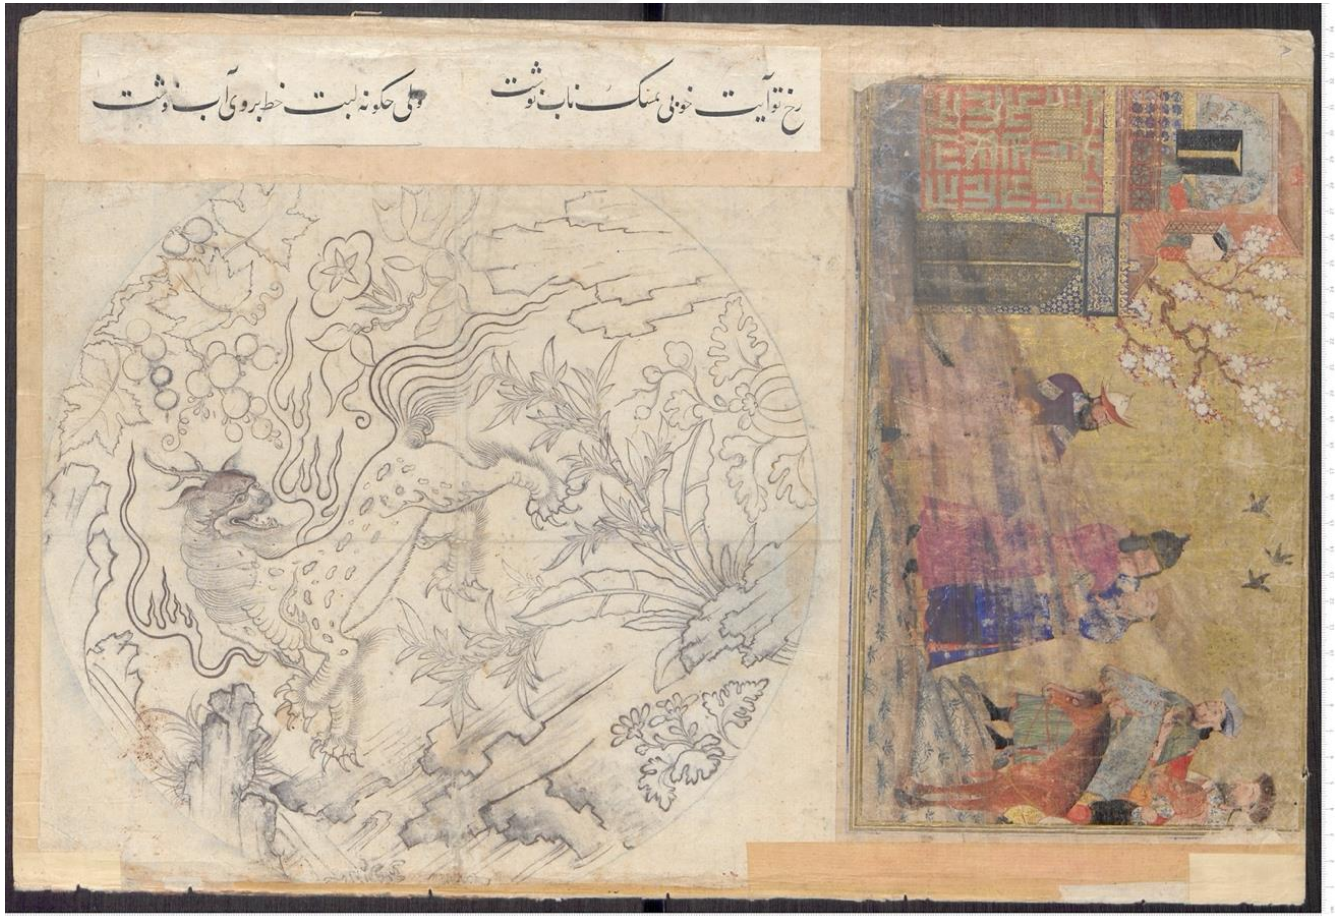 رخ تو آیت خوبی بمشک ناب نوشت ولی چکونه لبت خط بروی آب نوشت